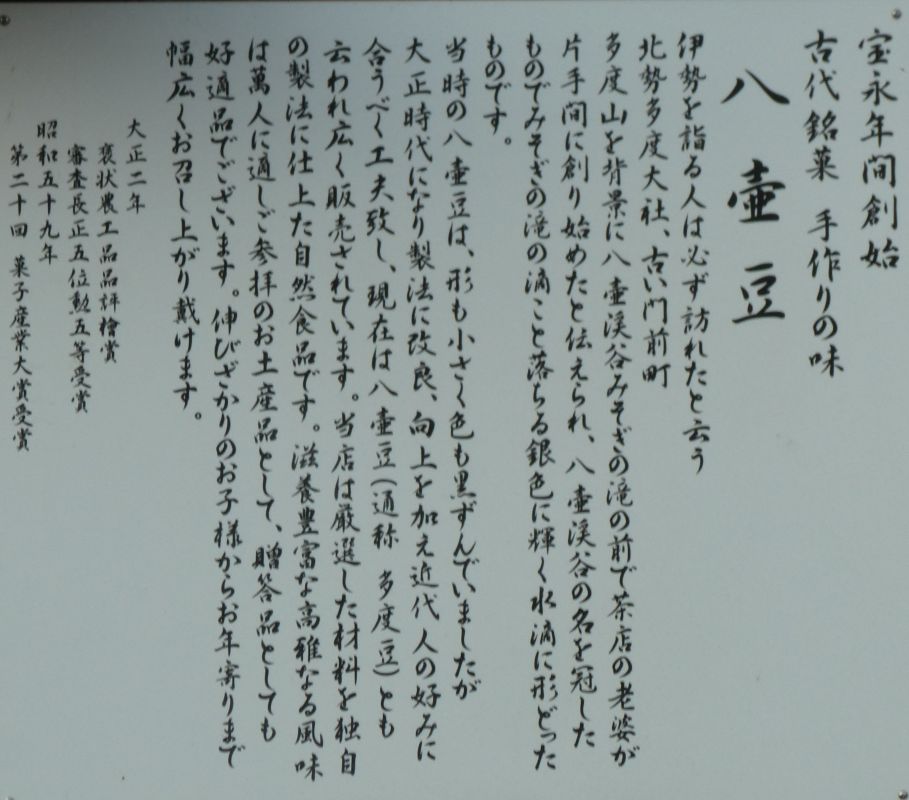 宝永年間創始
古代銘菓 手作りの味
八壷豆
伊勢を詣る人は必ず訪れたと云う
北勢多度大社、古い門前町
多度山を背景に八壷渓谷みそぎの滝の前で茶店の老婆が
片手間に創り始めたと伝えられ、八壷渓谷の名を冠した
ものでみそぎの滝の滴こと落ちる銀色に輝く水滴に形どった
ものです。
当時の八壷豆は、形も小さく色も黒ずんでいましたが
大正時代になり製法に改良、向上を加え近代人の好みに
合うべく工夫致し、現在は八壷豆(通称 多度豆)とも
云われ広く販売されています。当店は厳選した材料を独自
の製法に仕上た自然食品です。滋養豊富な高雅なる風味
は萬人に適しご参拝のお土産品として、贈答品としても
好適品でございます。伸びざかりのお子様からお年寄りまで
幅広くお召し上がり戴けます。
大正二年
褒状農工品品評檜賞
審査長正五位勲五等受賞
昭和五十九年
第二十回 菓子産業大賞受賞